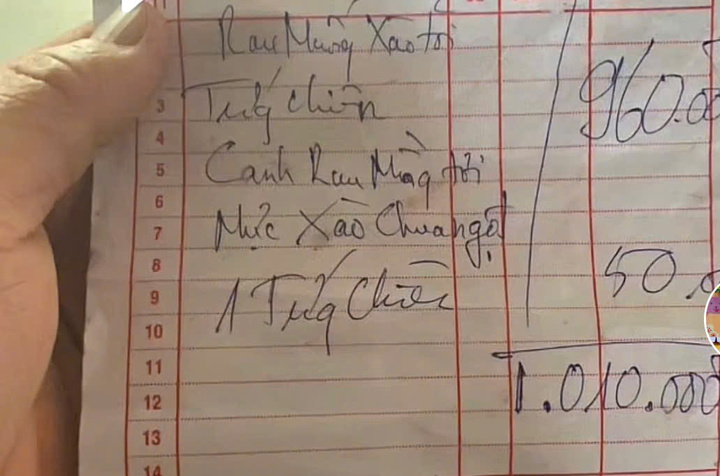 Rau Muống Xào tỏi
960.00
3 Trứng chiên
4
5 Canh Rau Mồng tơi
6
7 Mực Xào Chua ngọt
8
50.
9 1 Trứng Chiên
10
11
1.010.000
12
13
14